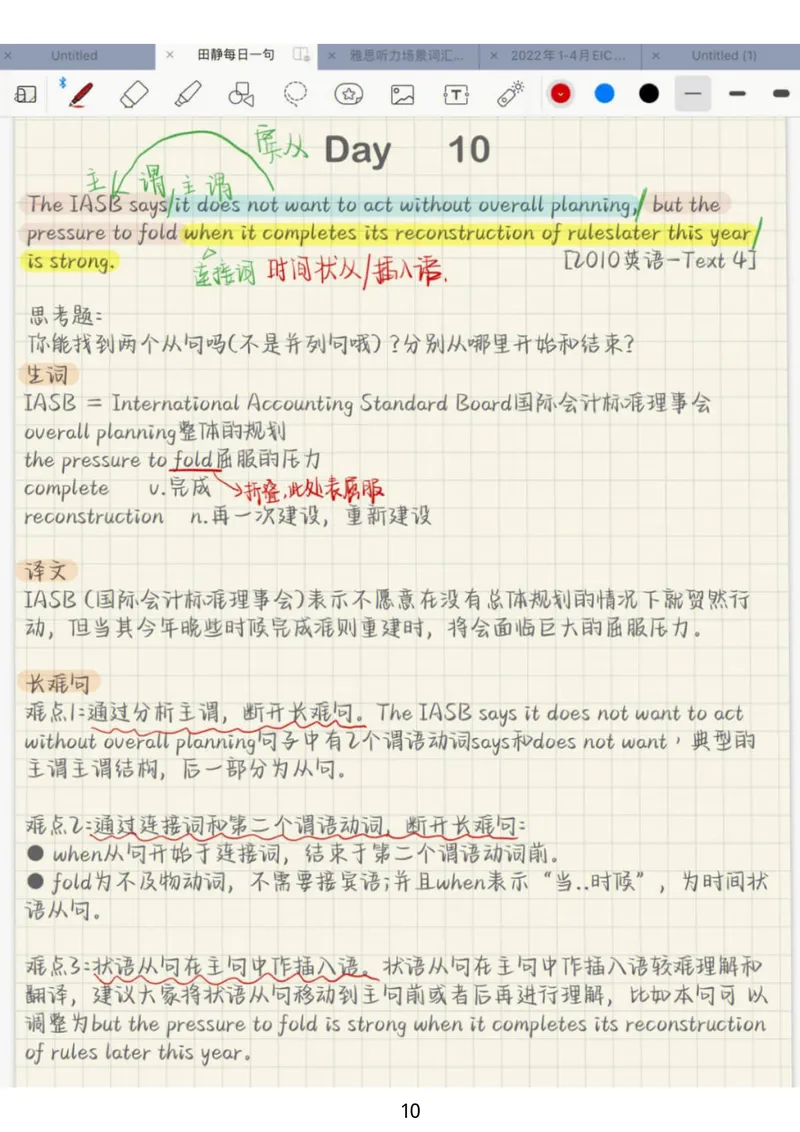 Untitled
田静每日一句
雅思听力场景词汇...
2022年1-4月EIC...
Untitled (1)
宾从
Day 10
主 谓 主 谓
The IASB says it does not want to act without overall planning, but the
pressure to fold when it completes its reconstruction of ruleslater this year
is strong.
[2010英语一Text 4]
连接词 时间状从/插入语.
思考题:
你能找到两个从句吗(不是并列句哦)?分别从哪里开始和结束?
生词
IASB = International Accounting Standard Board国际会计标准理事会
overall planning整体的规划
the pressure to fold屈服的压力
complete v.完成
折叠,此处表屈服
reconstruction n.再一次建设，重新建设
译文
IASB (国际会计标准理事会)表示不愿意在没有总体规划的情况下就贸然行
动，但当其今年晚些时候完成准则重建时，将会面临巨大的屈服压力。
长难句
难点1:通过分析主谓，断开长难句。The IASB says it does not want to act
without overall planning句子中有2个谓语动词says和does not want，典型的
主谓主谓结构，后一部分为从句。
难点2:通过连接词和第二个谓语动词，断开长难句:
● when从句开始于连接词，结束于第二个谓语动词前。
● fold为不及物动词，不需要接宾语;并且when表示“当..时候”，为时间状
语从句。
难点3:状语从句在主句中作插入语。状语从句在主句中作插入语较难理解和
翻译，建议大家将状语从句移动到主句前或者后再进行理解，比如本句可 以
调整为but the pressure to fold is strong when it completes its reconstruction
of rules later this year。
10